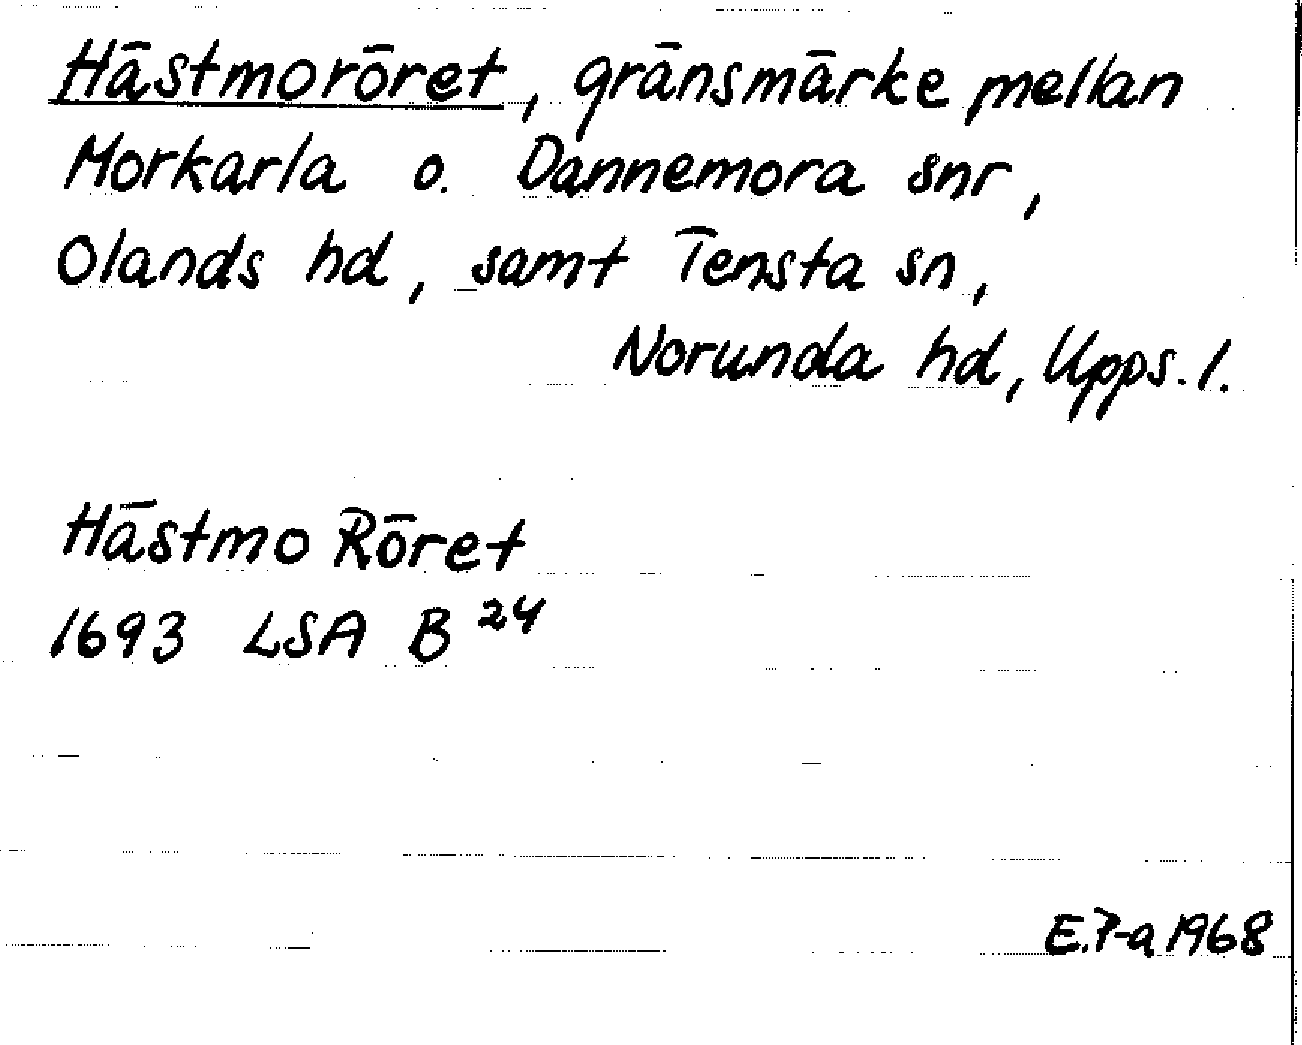 Hästmoröret, gränsmärke mellan
Morkarla o. Dannemora snr,
Olands hd, samt Tensta sn,
Norunda hd, Upps. l.
Hästmo Röret
1693 LSA B 24
E.P-a 1968